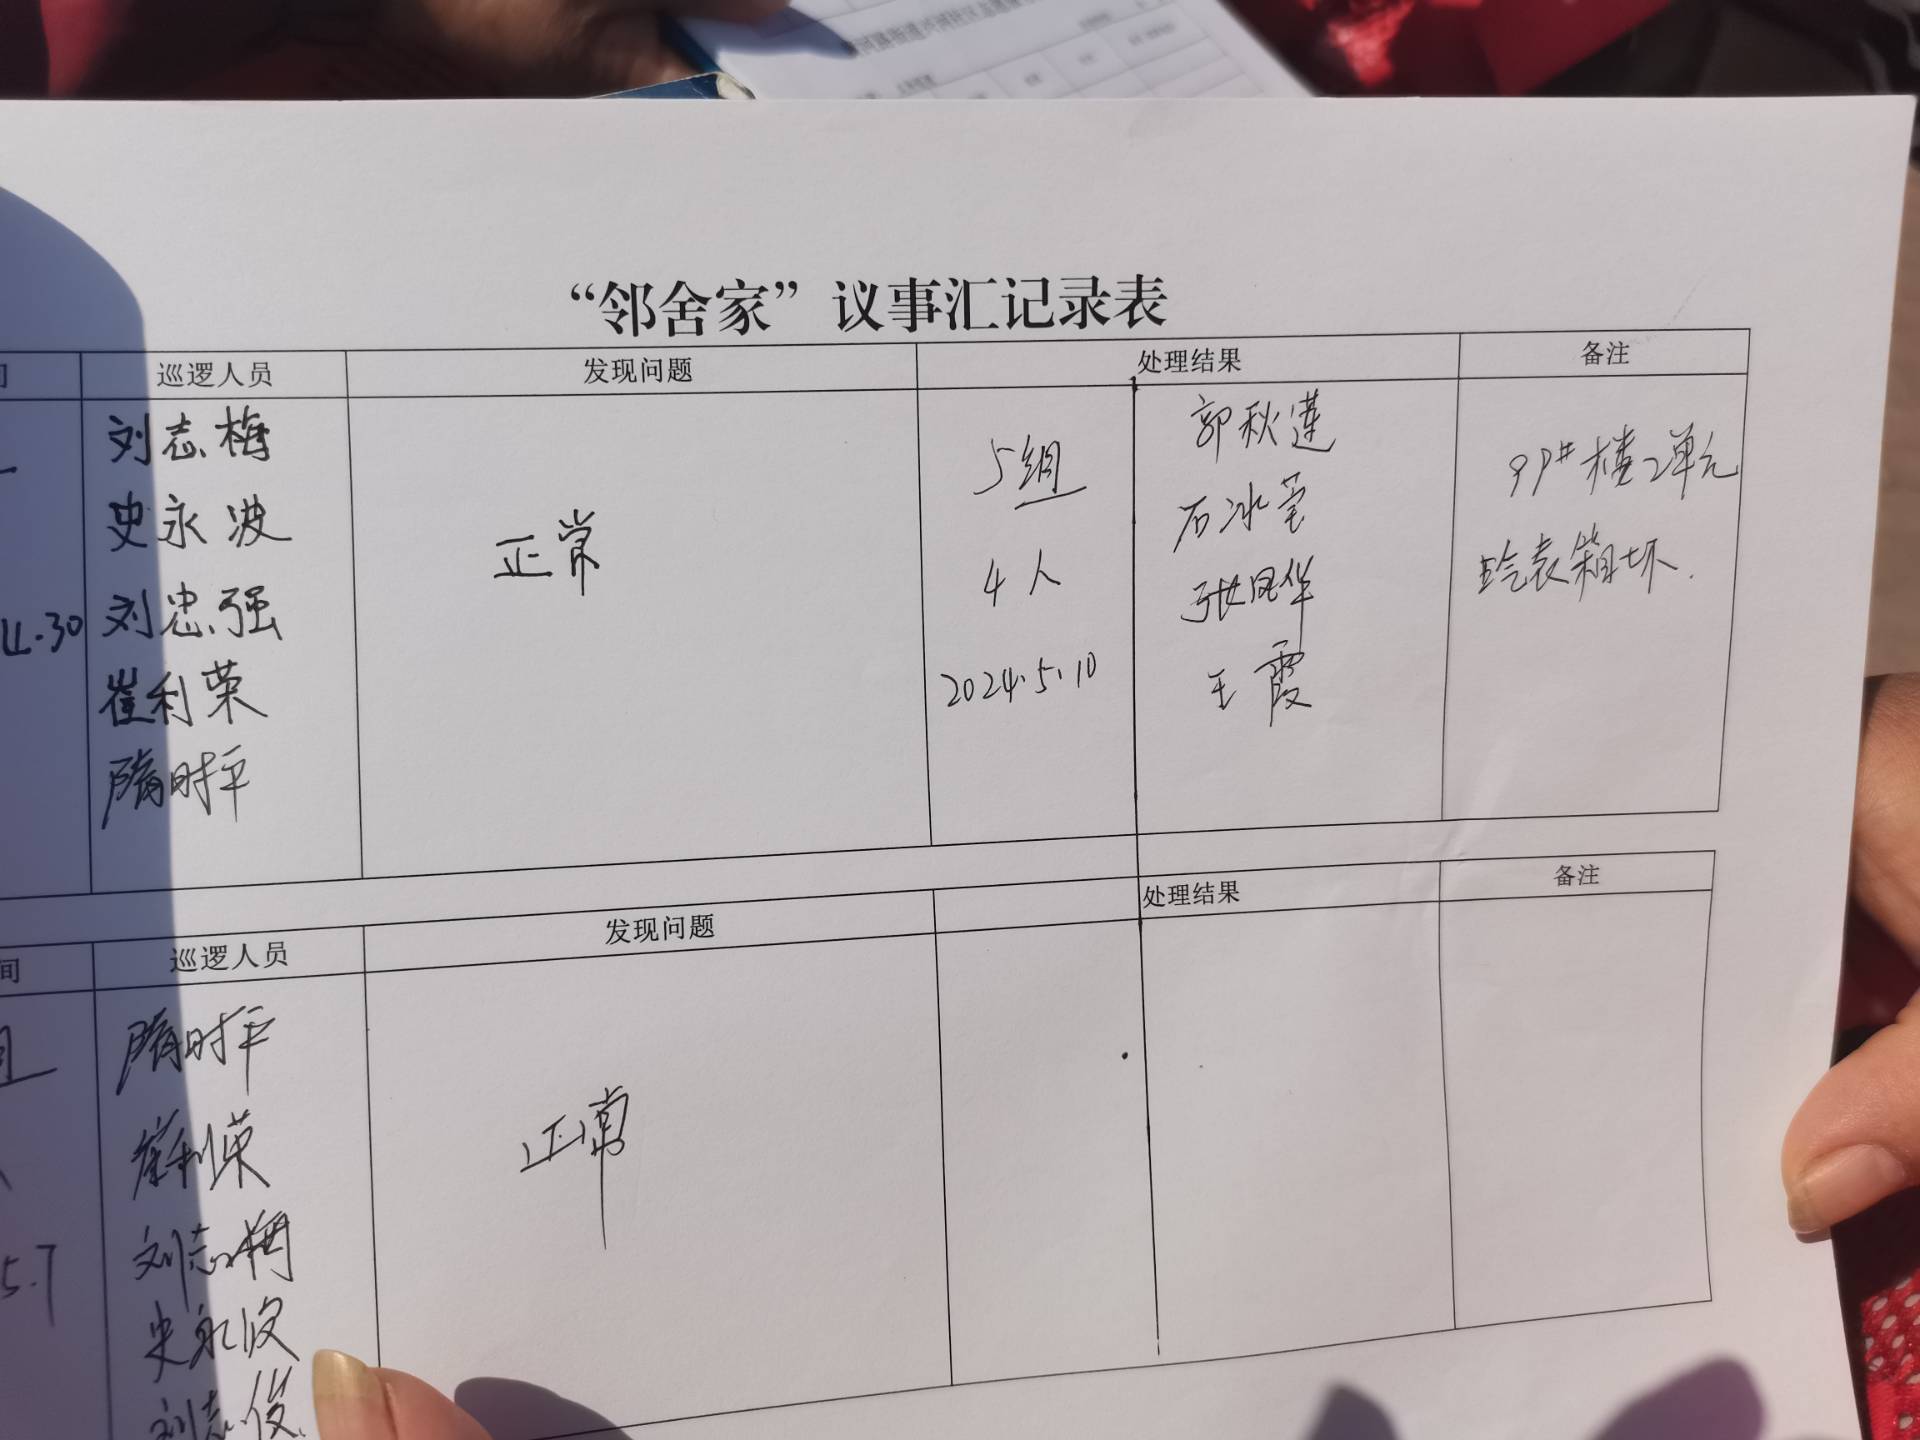 “邻舍家”议事汇记录表
间 巡逻人员 发现问题 处理结果 备注
刘志梅
史永波
刘忠强
崔利荣
隋时平
4.30
正常
5组
4人
2024.5.10
郭秋莲
石冰莹
张凤华
王霞
99#楼2单元
表箱坏.
间 巡逻人员 发现问题 处理结果 备注
隋时平
崔利荣
刘志梅
史永波
刘志俊
5.7
正常